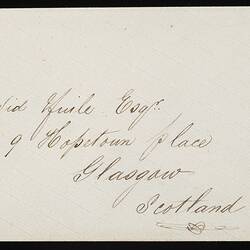 vid Huile Esqr.
9 Hopetoun place
Glasgow
Scotland